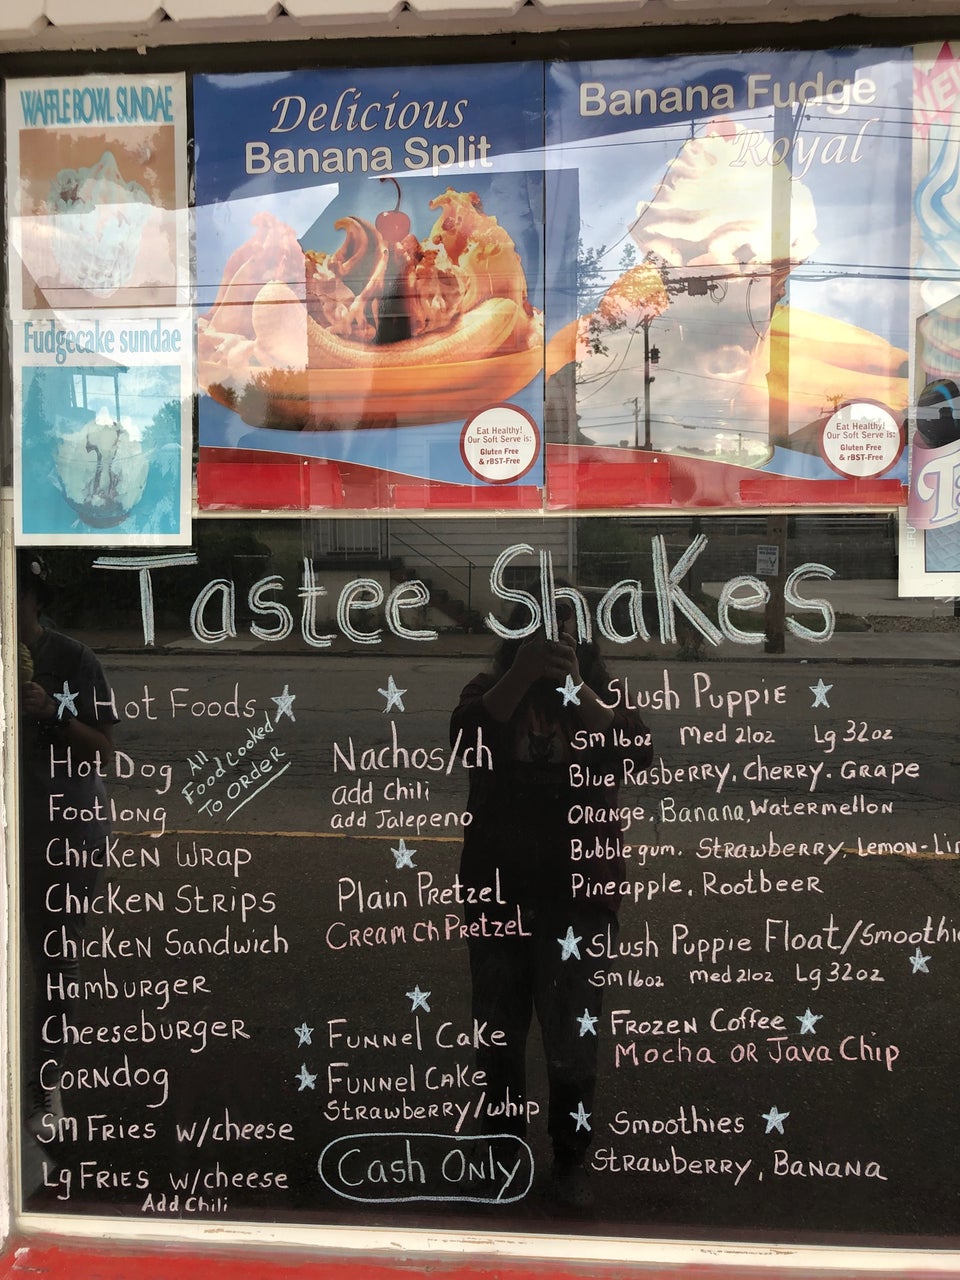 WAFFLE BOWL SUNDAE
Fudgecake sundae
Delicious
Banana Split
Eat Healthy!
Our Soft Serve is:
Gluten Free
& rBST-Free
Banana Fudge
Royal
Eat Healthy!
Our Soft Serve is:
Gluten Free
& rBST-Free
Tastee Shakes
Hot Foods
All
Food Cooked
To Order
Hot Dog
Footlong
Chicken Wrap
Chicken Strips
Chicken Sandwich
Hamburger
Cheeseburger
Corndog
Sm Fries w/cheese
Lg Fries w/cheese
Add Chili
Nachos/ch
add Chili
add Jalepeno
Plain Pretzel
Cream Ch Pretzel
Funnel Cake
Funnel Cake
Strawberry/whip
Cash Only
Slush Puppie
Sm 16oz Med 21oz Lg 32oz
Blue Rasberry. Cherry. Grape
Orange. Banana, Watermellon
Bubblegum. Strawberry, Lemon-Lim
Pineapple, Rootbeer
Slush Puppie Float/Smoothi
Sm 16oz Med 21oz Lg 32oz
Frozen Coffee
Mocha or Java Chip
Smoothies
Strawberry, Banana